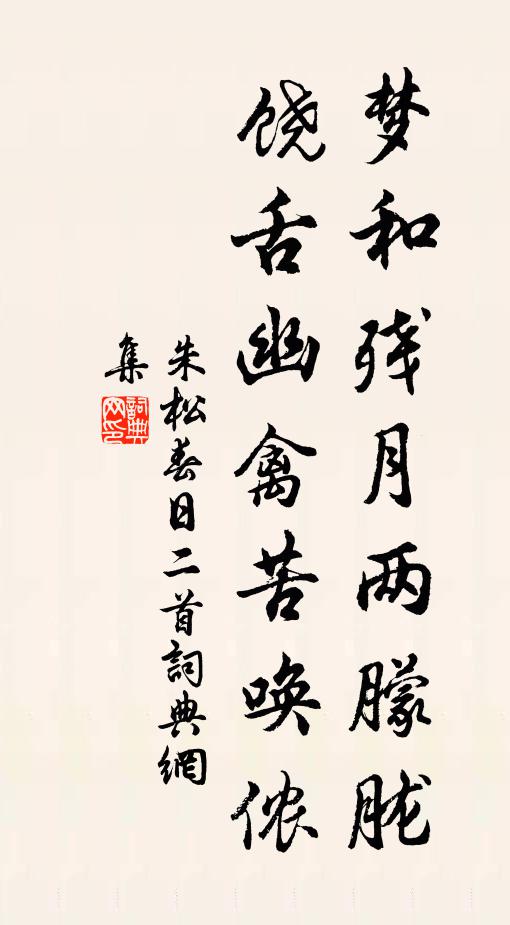 梦和残月两朦胧
饶舌幽禽苦唤侬
朱松春日二首詞典網
集
詞典网印